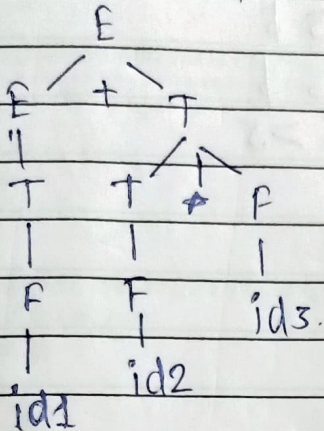 E
E + T
T T * F
F F id3.
id1 id2